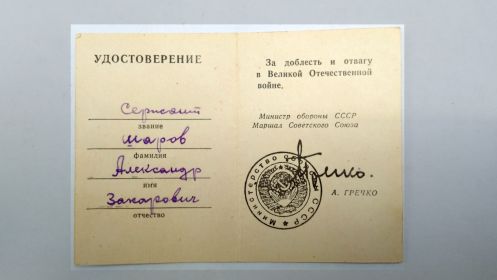 УДОСТОВЕРЕНИЕ
Сержант
звание
Шаров
фамилия
Александр
имя
Захарович
отчество
За доблесть и отвагу
в Великой Отечественной
войне.
Министр обороны СССР
Маршал Советского Союза
Министерство обороны СССР
А. ГРЕЧКО